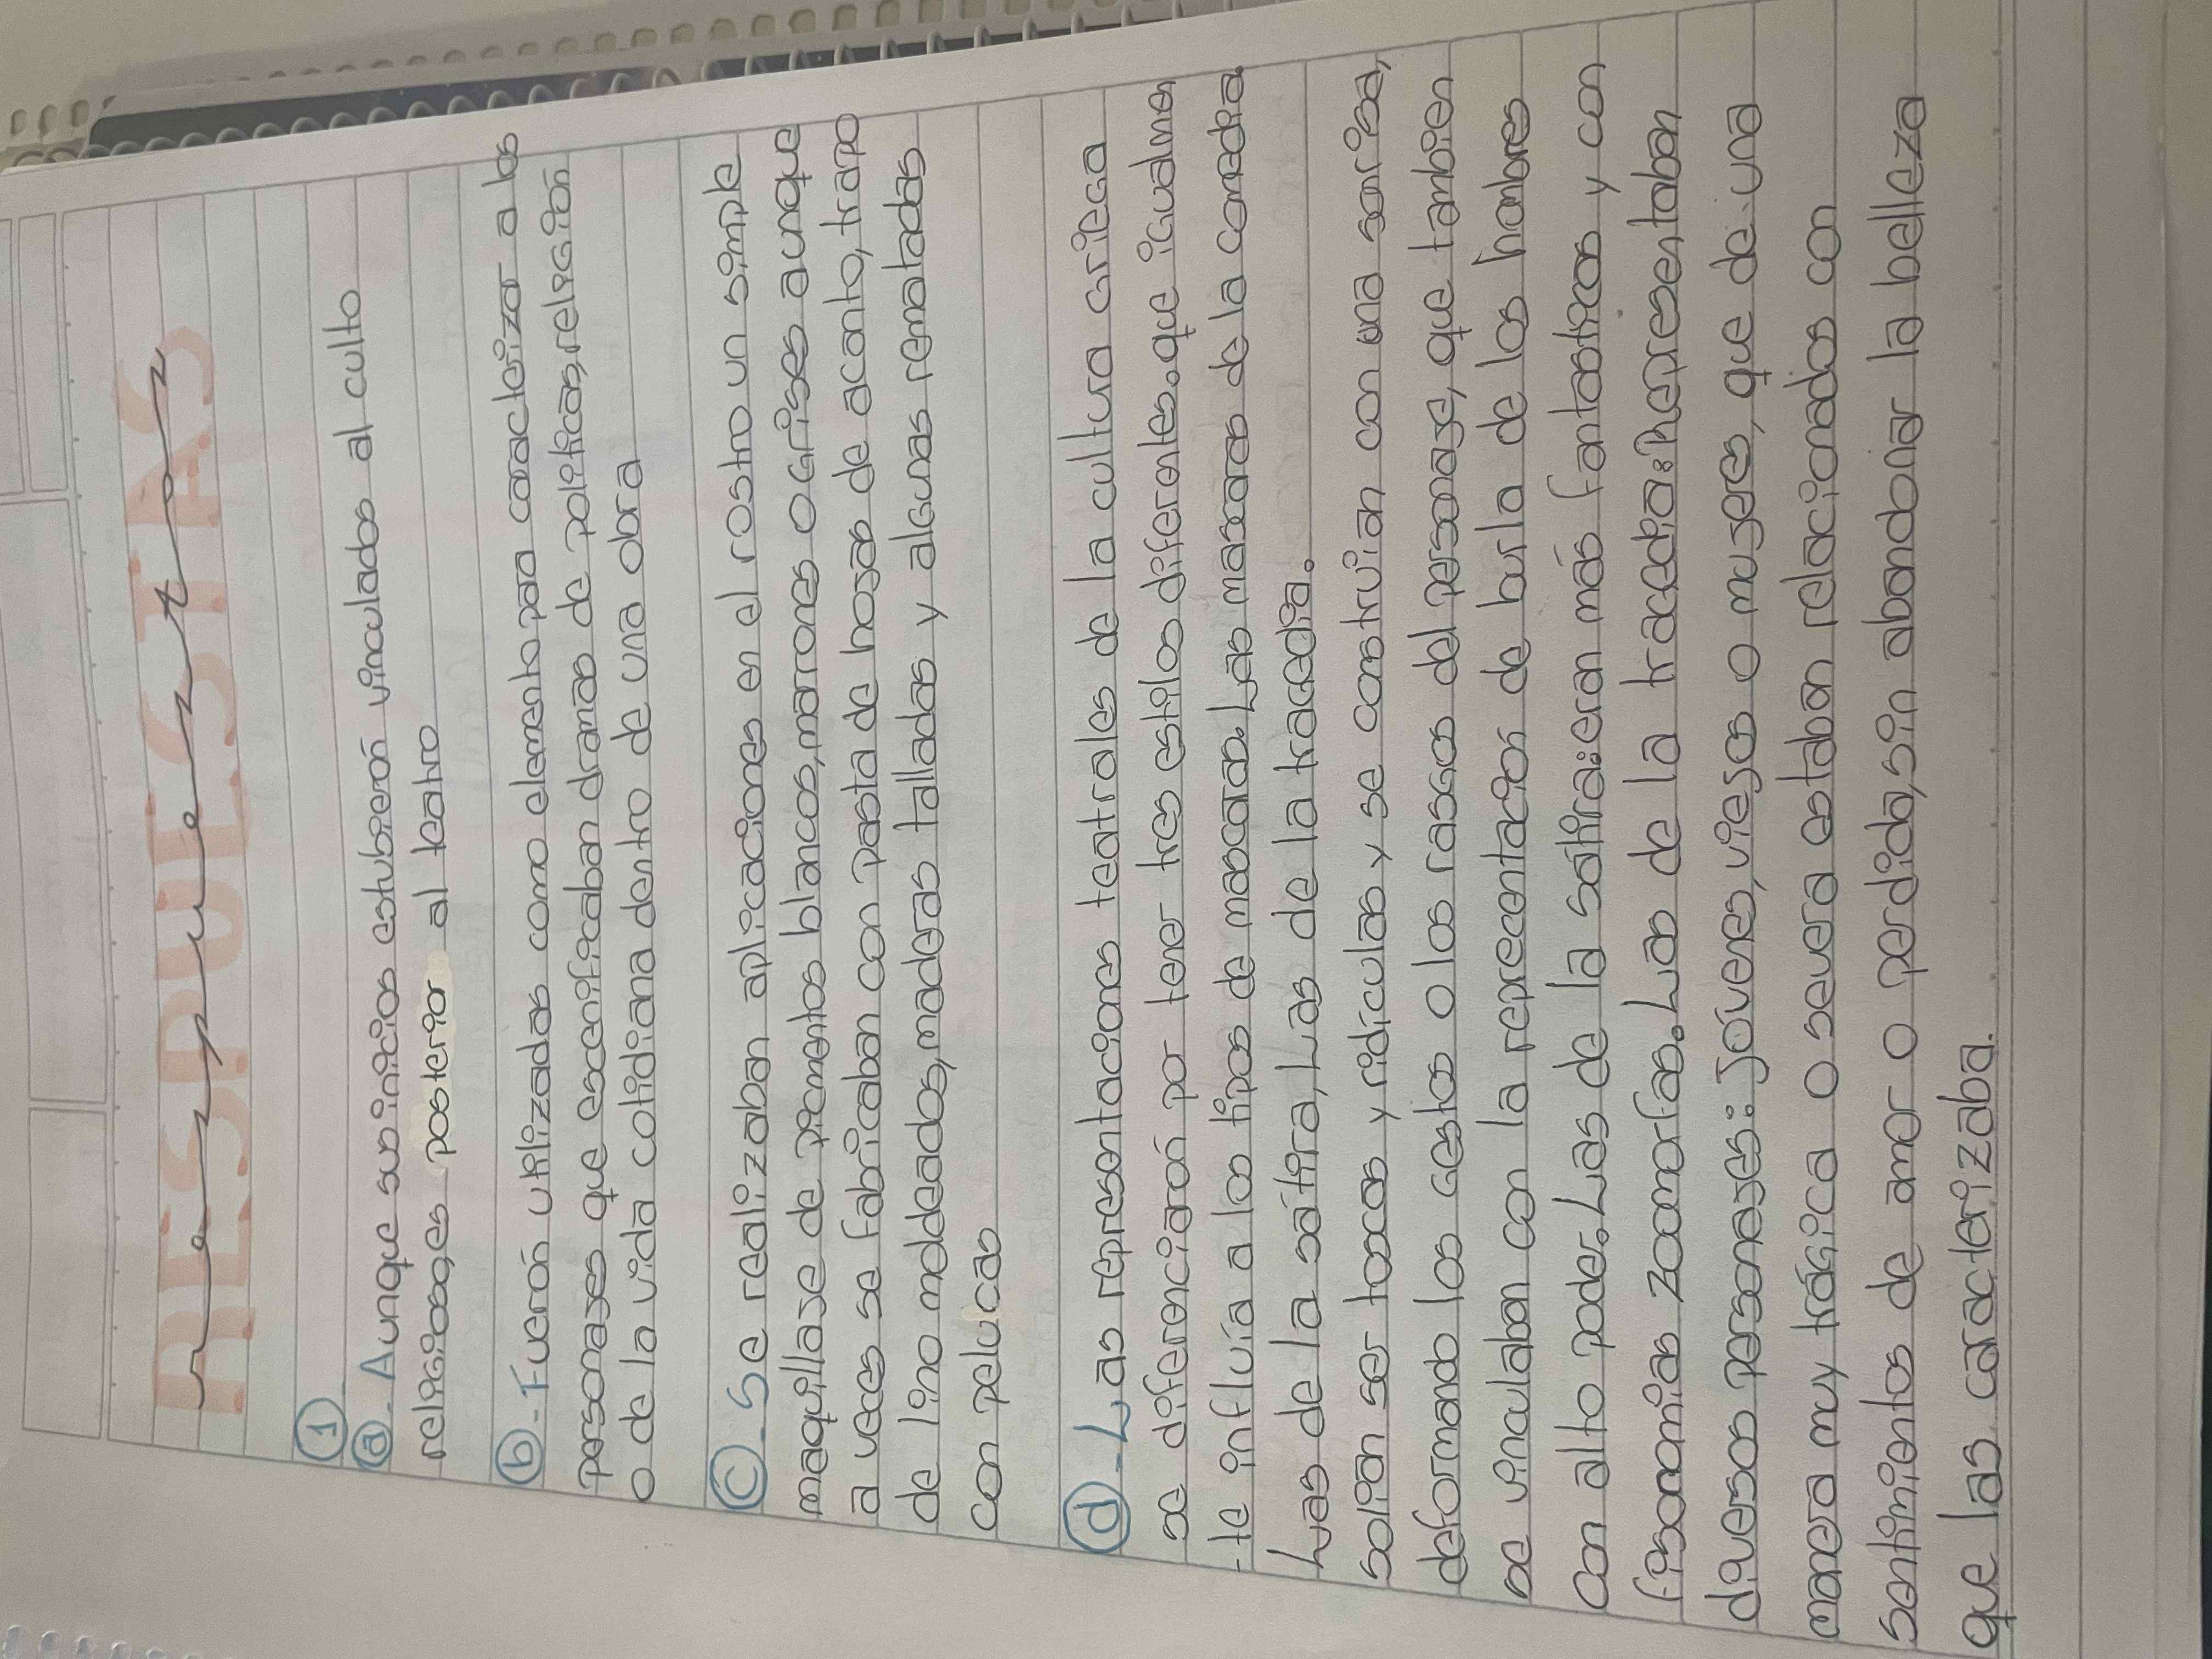 RESPUESTAS
respuestas
1
a - Aunque sus inicios estubierón vinculados al culto
religioso, es posterior al teatro
b - Fuerón utilizadas como elemento para caracterizar a los
personajes que escenificaban dramas de políticos, religión
o de la vida cotidiana dentro de una obra
c - Se realizaban aplicaciones en el rostro un simple
maquillaje de pigmentos blancos, marrones o grises aunque
a veces se fabricaban con pasta de hojas de acanto, trapo
de lino moldeados, maderas talladas y algunas rematadas
con pelucas
d - Las representaciones teatrales de la cultura griega
se diferenciarón por tener tres estilos diferentes. que igualmen
-te influía a los tipos de mascara. Las mascaras de la comedia
Las de la sátira, Las de la tragedia.
solian ser toscas y ridiculas y se construian con una sonrisa,
deformando los gestos o los rasgos del personaje, que tambien
se vinculaban con la reprecentación de burla de los hombres
con alto poder. Las de la sátira: eran más fantasticas y con
fisonomias zoomorfas. Las de la tragedia: Representaban
diversos personajes: Jóvenes, viejos o mujeres, que de una
manera muy trágica o severa estaban relacionados con
sentimientos de amor o perdida, sin abandonar la belleza
que las caracterizaba.